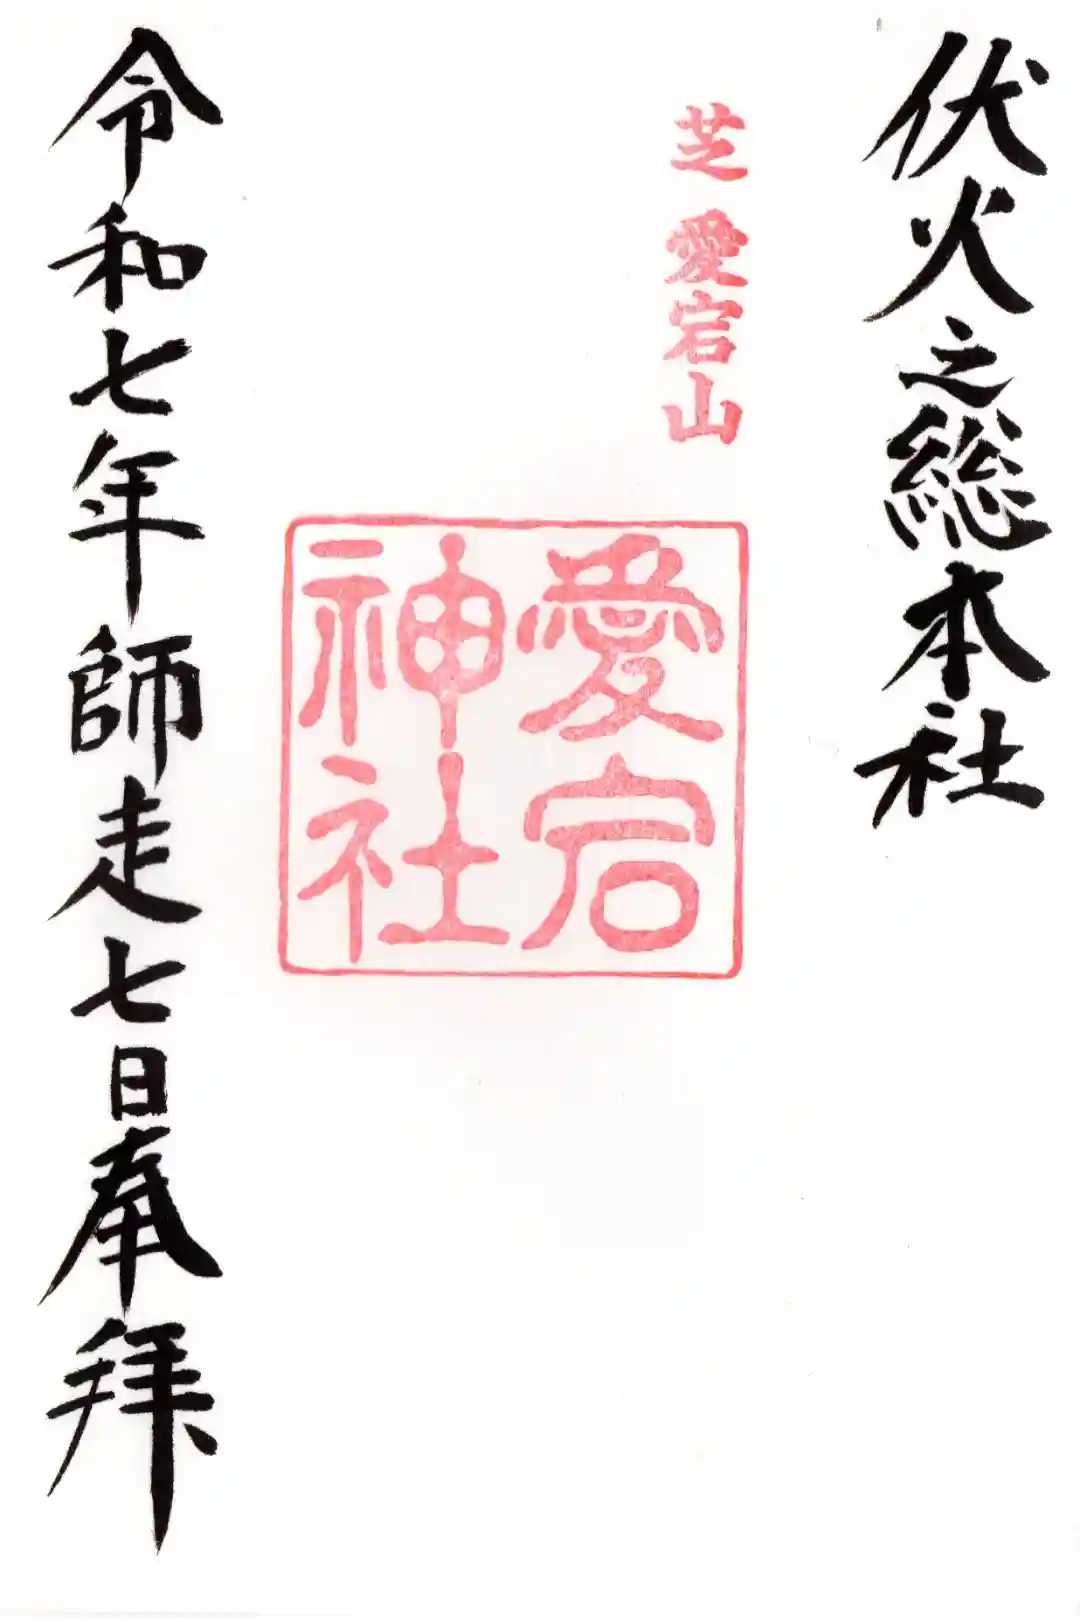 伏火之総本社
芝 愛宕山
愛宕
神社
令和七年師走七日奉拝